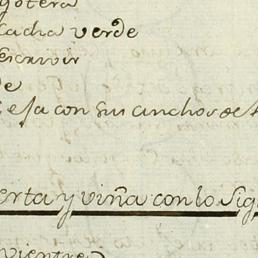 gotera
cadha verde
escrivir
de
esa con sus anchos de
erta y viña con lo sig
vientre